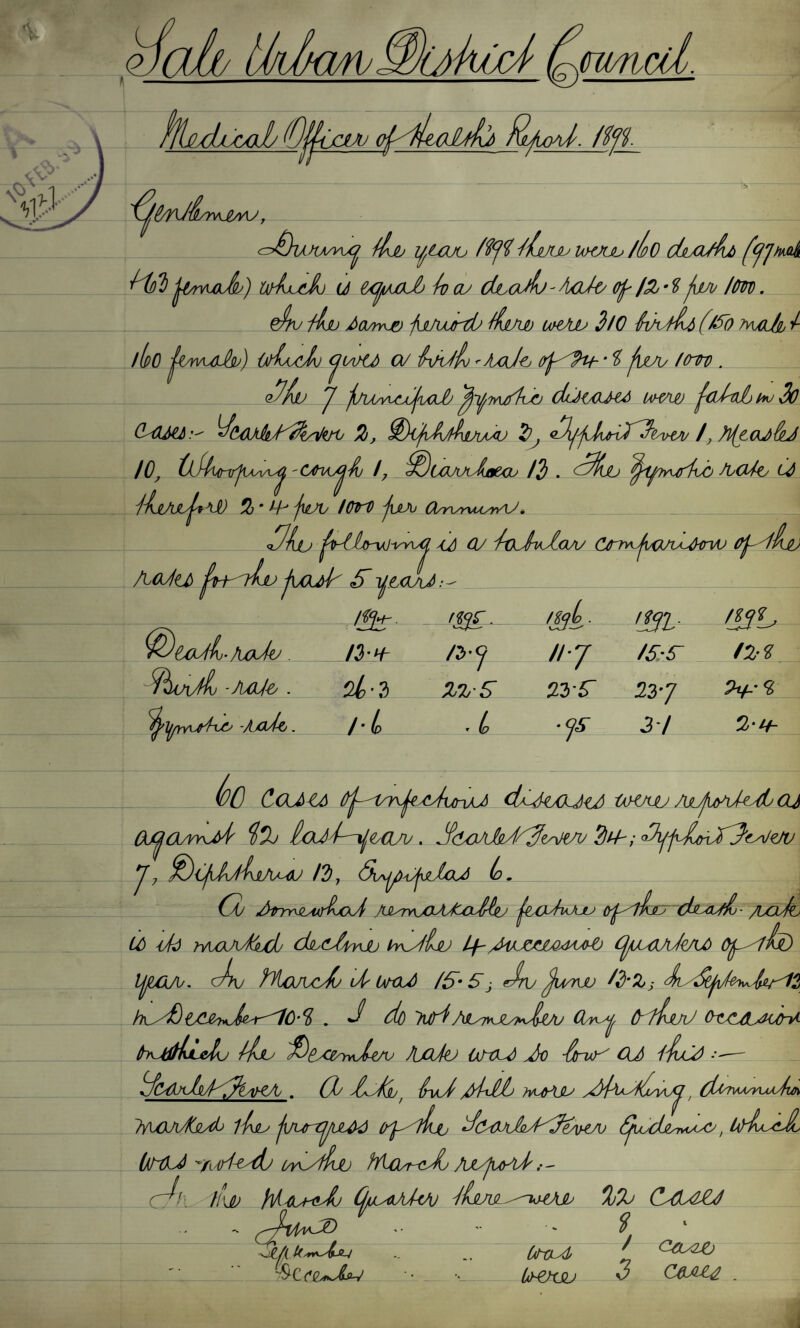 Sale Urban District Council.
Medical Officer of Health's Report. 1898.
10 FEB. 99
Gentlemen,
During the year 1898 there were 160 deaths (97 male
& 63 female) which is equal to a death-rate of 12·8 per 1000.
In the same period there were 310 births (150 male &
160 female) which gives a birth-rate of 24·8 per 1000.
The 7 principal Zymotic diseases were fatal in 30
Cases:- Scarlet Fever 2, Diphtheria 3, Typhoid Fever 1, Measles
10, Whooping-Cough 1, Diarrhoea 13. The Zymotic rate is
therefore 2·4 per 1000 per Annum.
The following is a tabular comparison of the
rates for the past 5 years:-
1894. 1895. 1896. 1897. 1898.
Death-rate. 13·4 13·9 11·7 15·5 12·8
Birth-rate. 26·3 22·5 23·5 23·7 24·8
Zymotic-rate. 1·6 ·6 ·95 3·1 2·4
60 Cases of infectious diseases were reported as
against 82 last year. Scarlet Fever 34; Typhoid Fever
7, Diphtheria 13, Erysipelas 6.
A somewhat remarkable feature of the death-rate
is its marked decline in the 4 successive quarters of the
year. In March it was 15·5; In June 13·2; In September 12
In December 10·8. I do not remember any other occasion
in which the December rate was so low as this:-
Scarlet Fever. A like, but still more striking, diminution
marked the progress of the Scarlet Fever Epidemic, which
was noted in the March report:-
In the March Quarter there were 22 Cases
June 8
September was 1 case
December were 3 cases.